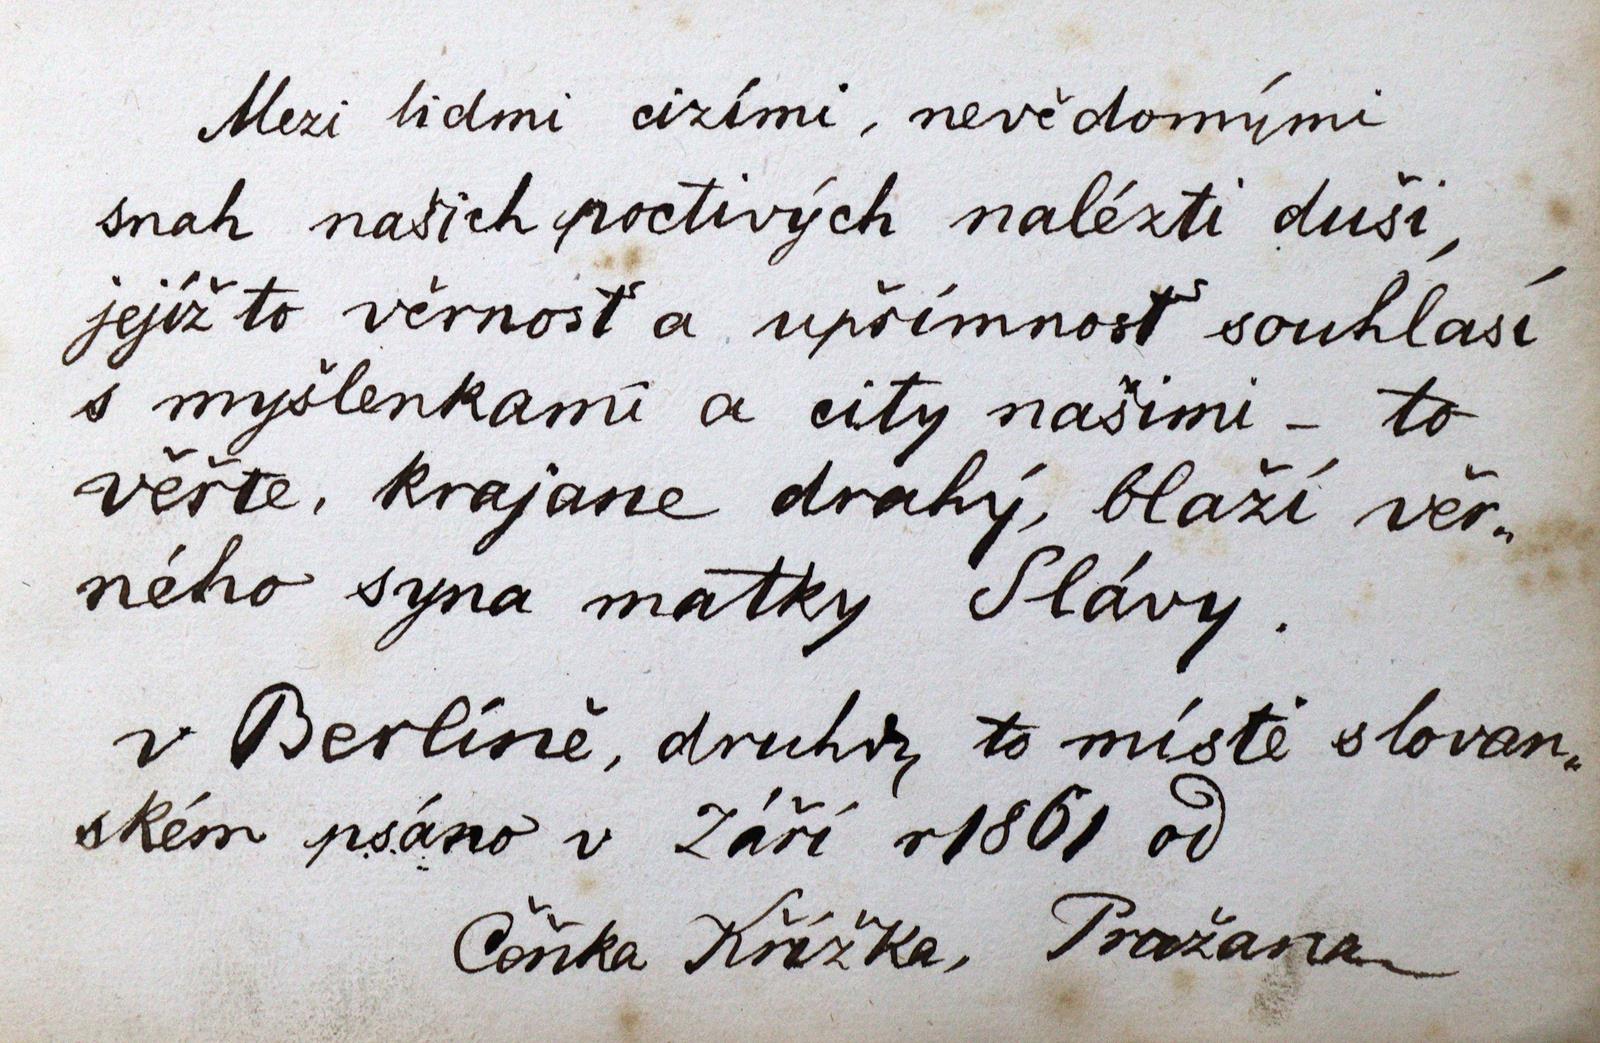 Mezi lidmi cizími, nevědomými
snah našich poctivých nalézti duši,
jejížto věrnosť a upřímnosť souhlasí
s myšlenkami a city našimi – to
věřte, krajane drahý, blaží věr„
ného syna matky Slávy.
v Berlíně, druhdy to místě slovan„
ském psáno v Září r 1861 od
Čeňka Křížka, Pražana